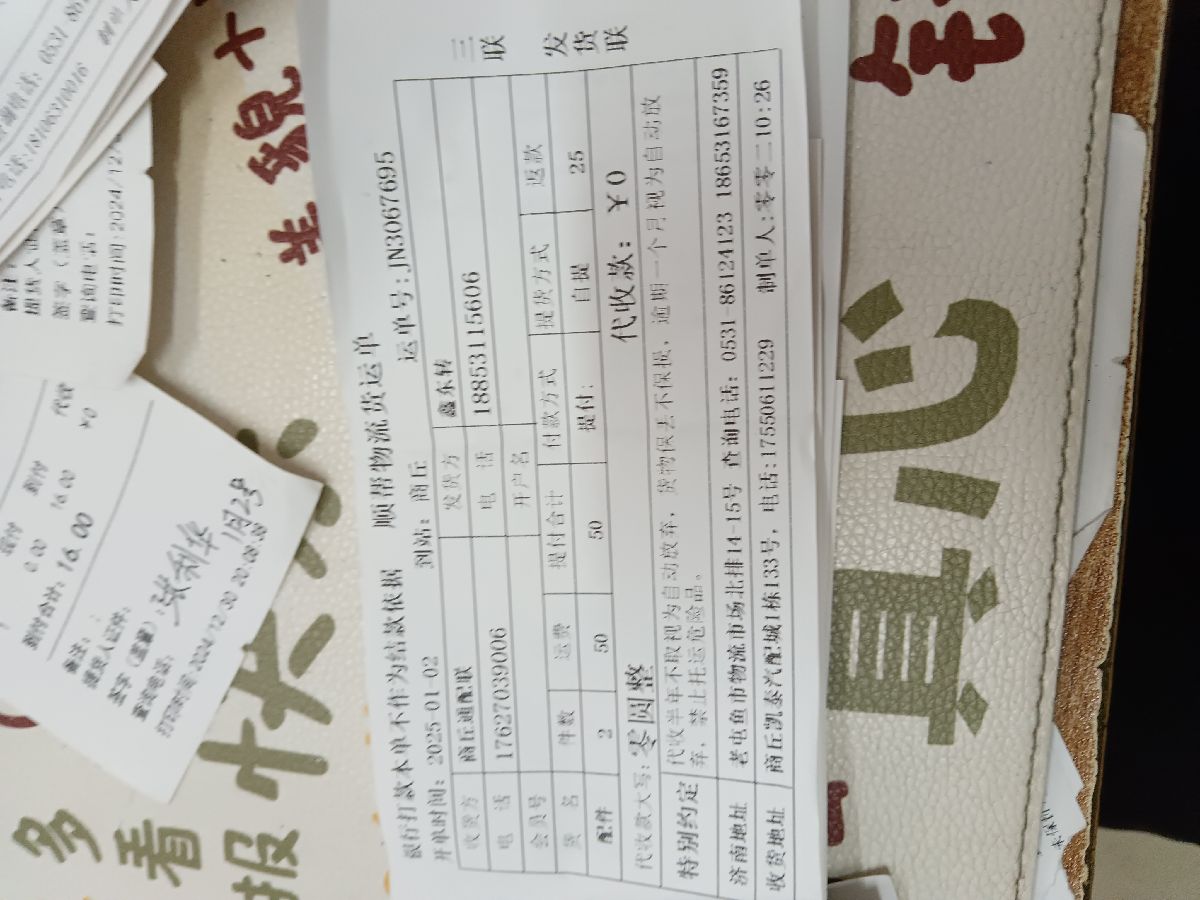 顺帮物流货运单
三联 发货联
银行打款本单不作为结款依据 运单号:JN3067695
开单时间: 2025-01-02 到站: 商丘
收货方 商丘通配联 发货方 鑫东转
电 话 17627039006 电 话 18853115606
会员号 开户名
货 名 件数 运费 提付合计 付款方式 提货方式 返款
配件 2 50 50 提付: 自提 25
代收款大写: 零圆整 代收款: ¥0
特别约定 代收半年不取视为自动放弃, 货物保丢不保损, 逾期一个月视为自动放
弃, 禁止托运危险品。
济南地址 老屯鱼市物流市场北排14-15号 查询电话: 0531-86124123 18653167359
收货地址 商丘凯泰汽配城1栋133号, 电话:17550611229 制单人:零零二10:26
到付 代收
0.00 16.00 ¥0
到付合计: 16.00
备注:
提货人证件:
签字(盖章): 张利华
查询电话: 1月2号
打印时间:2024/12/30 20:08:08
签字(盖章)
查询电话:
打印时间:2024/12
电话:18106310016
查询电话: 0531
多看
报
快
直心